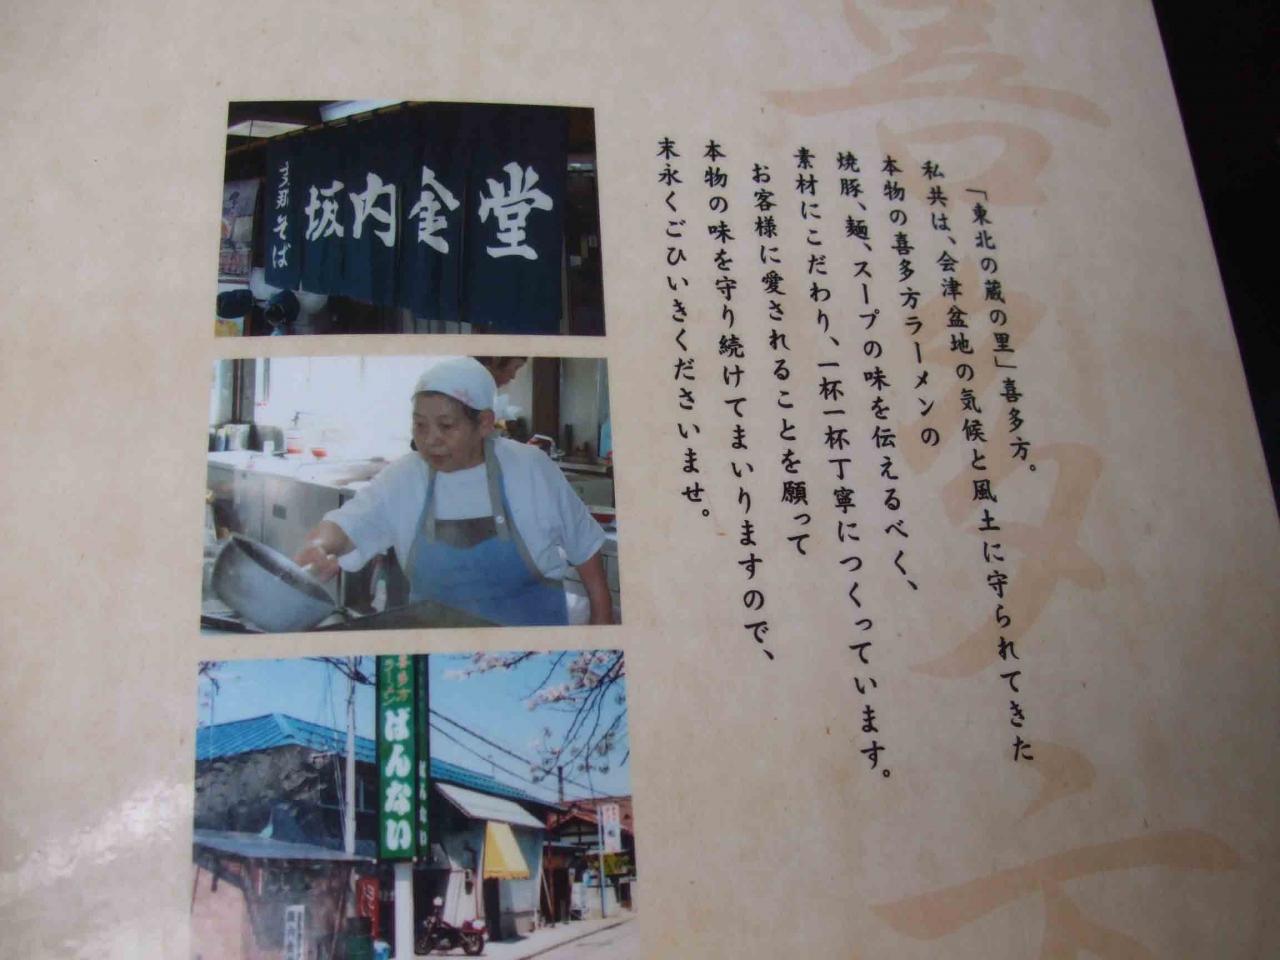 「東北の蔵の里」喜多方。
私共は、会津盆地の気候と風土に守られてきた
本物の喜多方ラーメンの
焼豚、麺、スープの味を伝えるべく、
素材にこだわり、一杯一杯丁寧につくっています。
お客様に愛されることを願って
本物の味を守り続けてまいりますので、
末永くごひいきくださいませ。
坂内食堂
支那そば
喜多方
ラーメン
ばんない
ばんない
喜多方